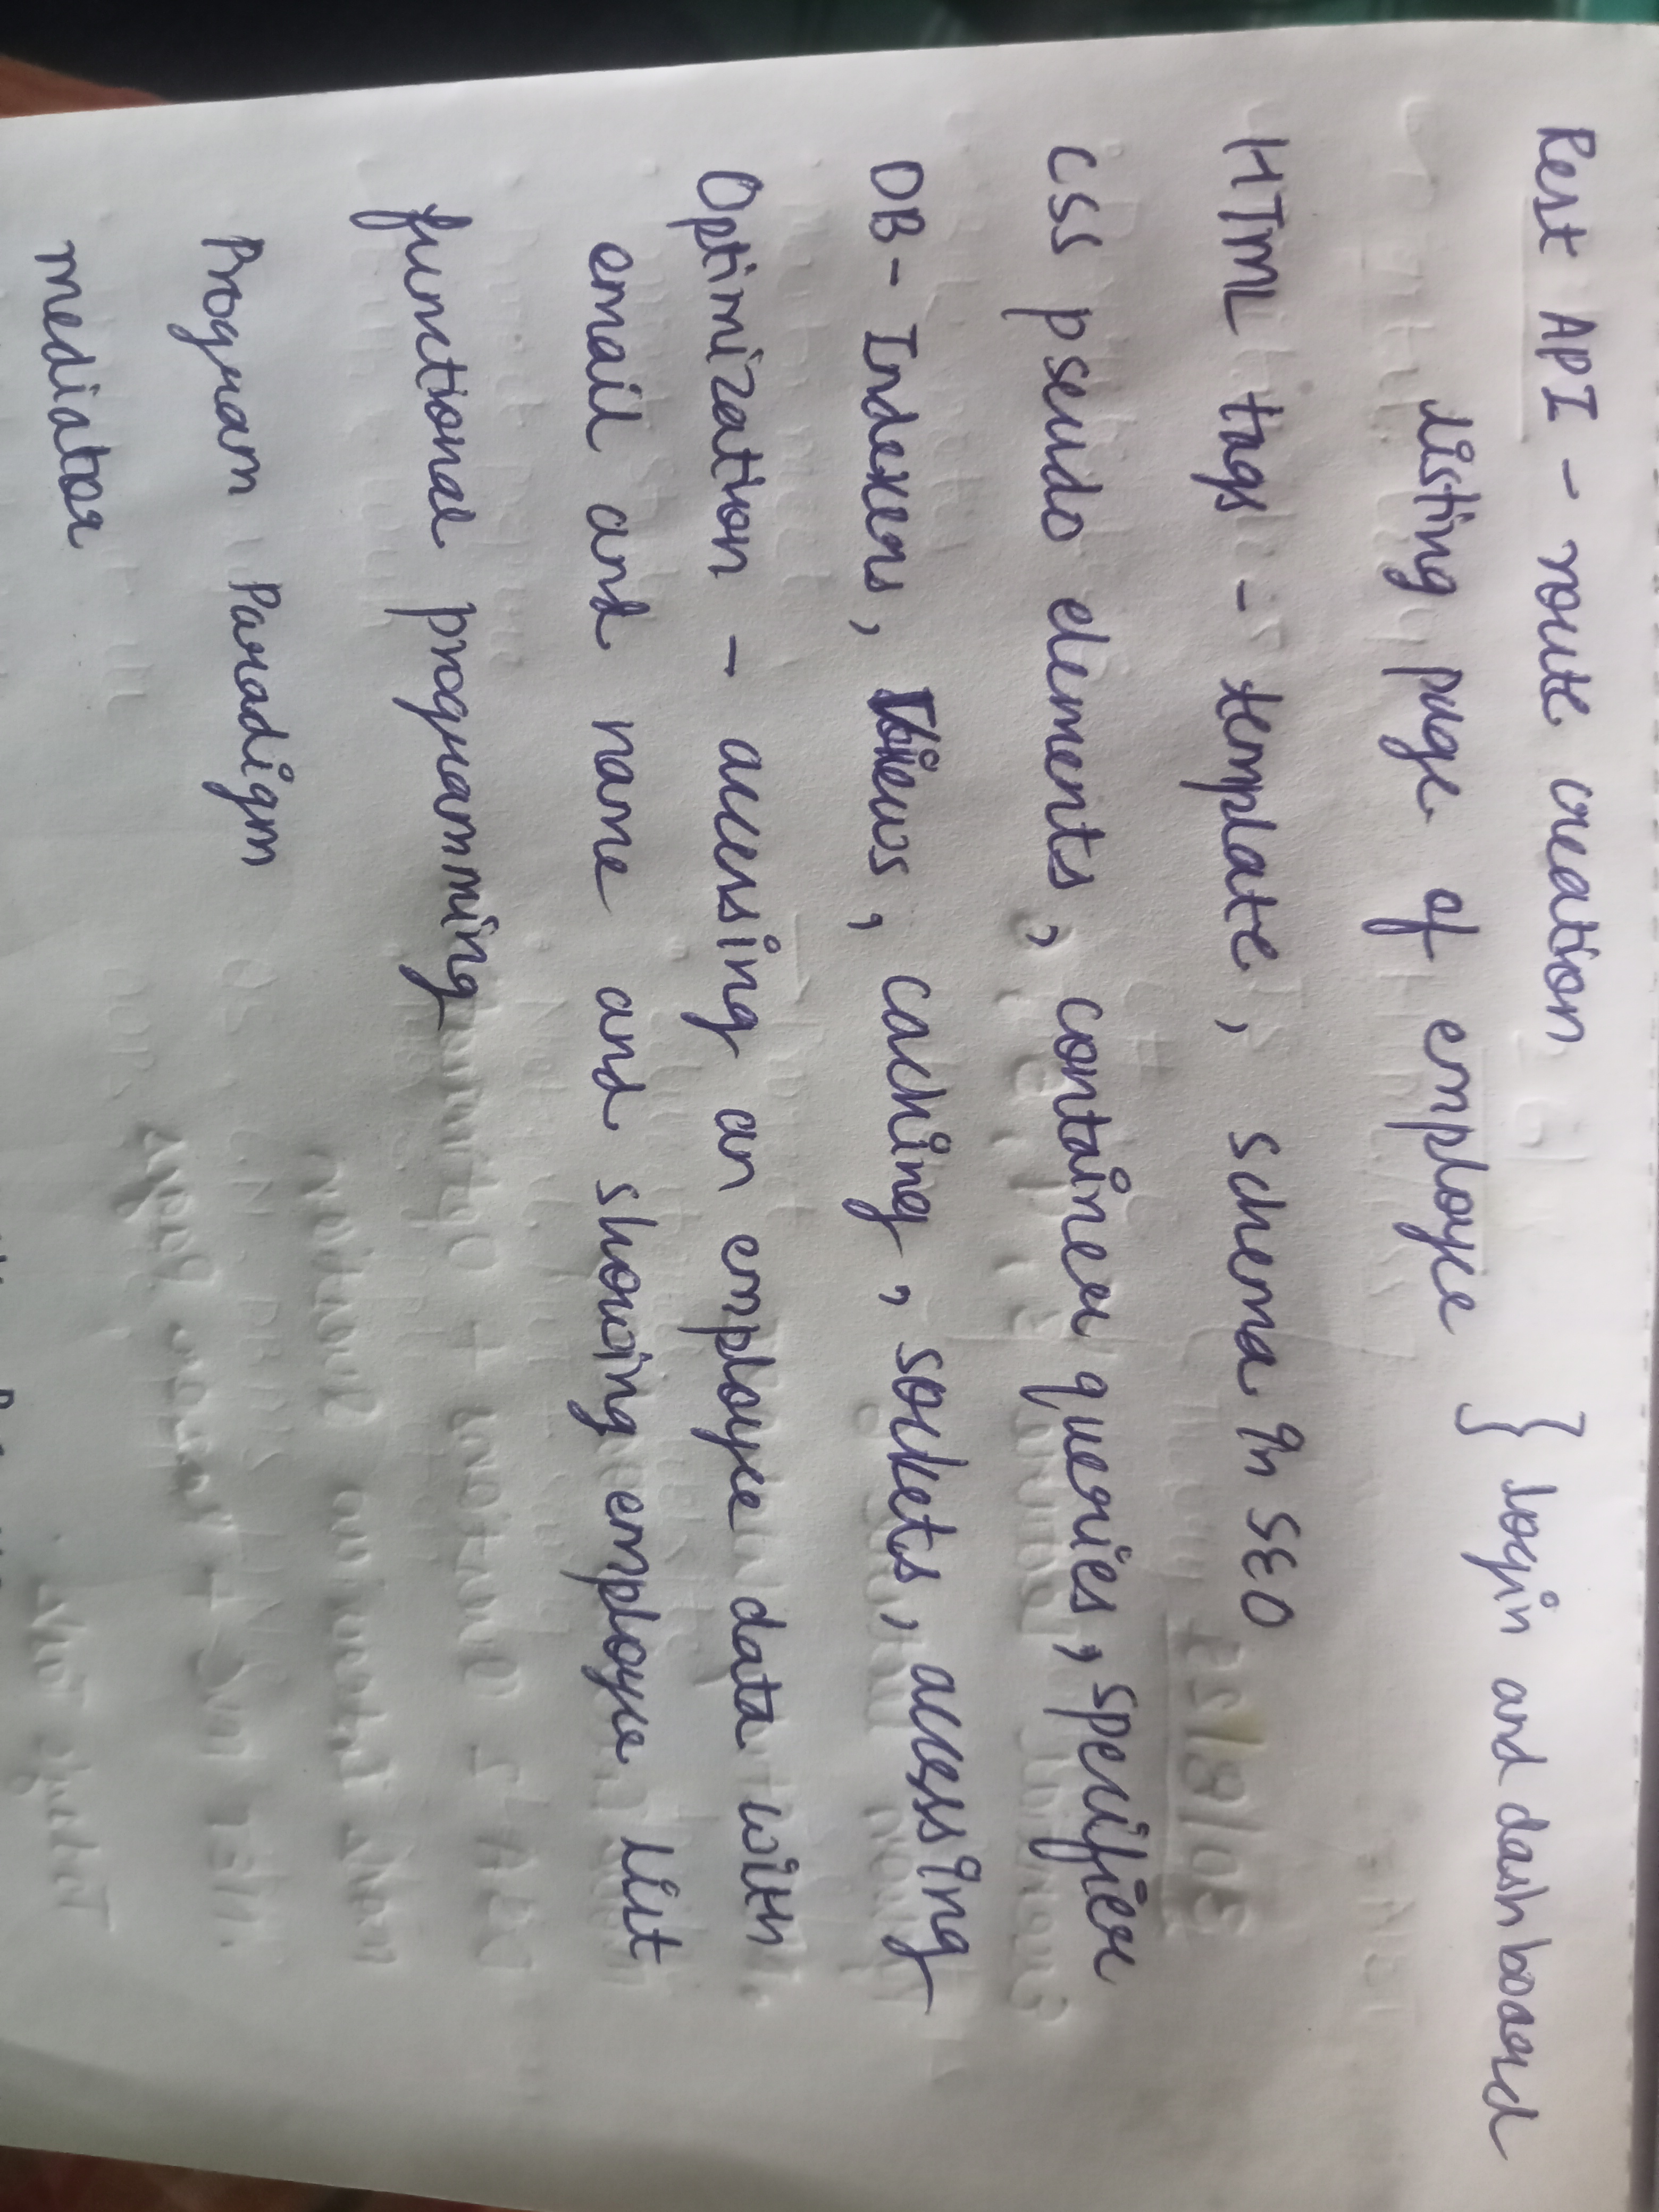 Rest API - route creation
} login and dashboard
listing page of employee
HTML tags - template, schema in SEO
CSS pseudo elements, container queries, specifier
DB - Indexers, Views, caching, sockets, accessing
Optimization - accessing an employee data with
email and name and showing employee list
functional programming
Program Paradigm
mediator